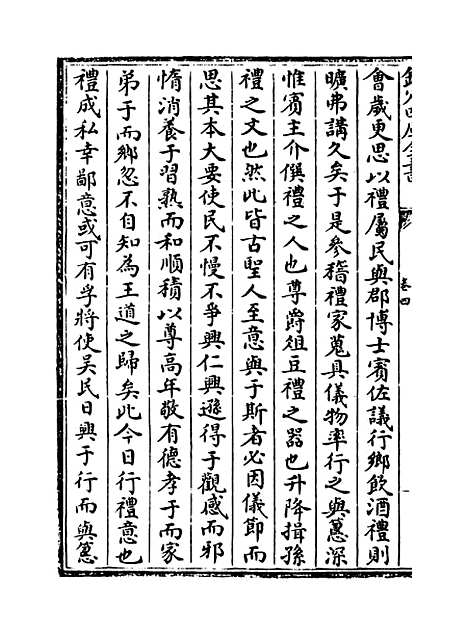 欽定四庫全書
卷四
會歲更思以禮屬民與郡博士賓佐議行鄉飲酒禮則
曠弗講久矣于是參稽禮家蒐具儀物率行之與蒽深
惟賓主介僎禮之人也尊爵俎豆禮之器也升降揖孫
禮之文也然此皆古聖人至意與于斯者必因儀節而
思其本大要使民不慢不爭興仁興遜得于觀感而邪
惰消養于習熟而和順積以尊高年敬有德孝于而家
弟于而鄉忽不自知為王道之歸矣此今日行禮意也
禮成私幸鄙意或可有孚將使吳民日興于行而與蒽